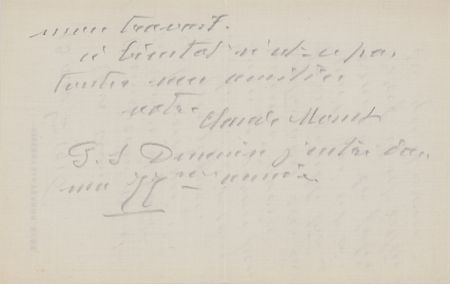 mon travail.
à bientôt n'est-ce pas
toutes mes amitiés
votre
Claude Monet
P. S Demain j'entre dans
ma 77me année